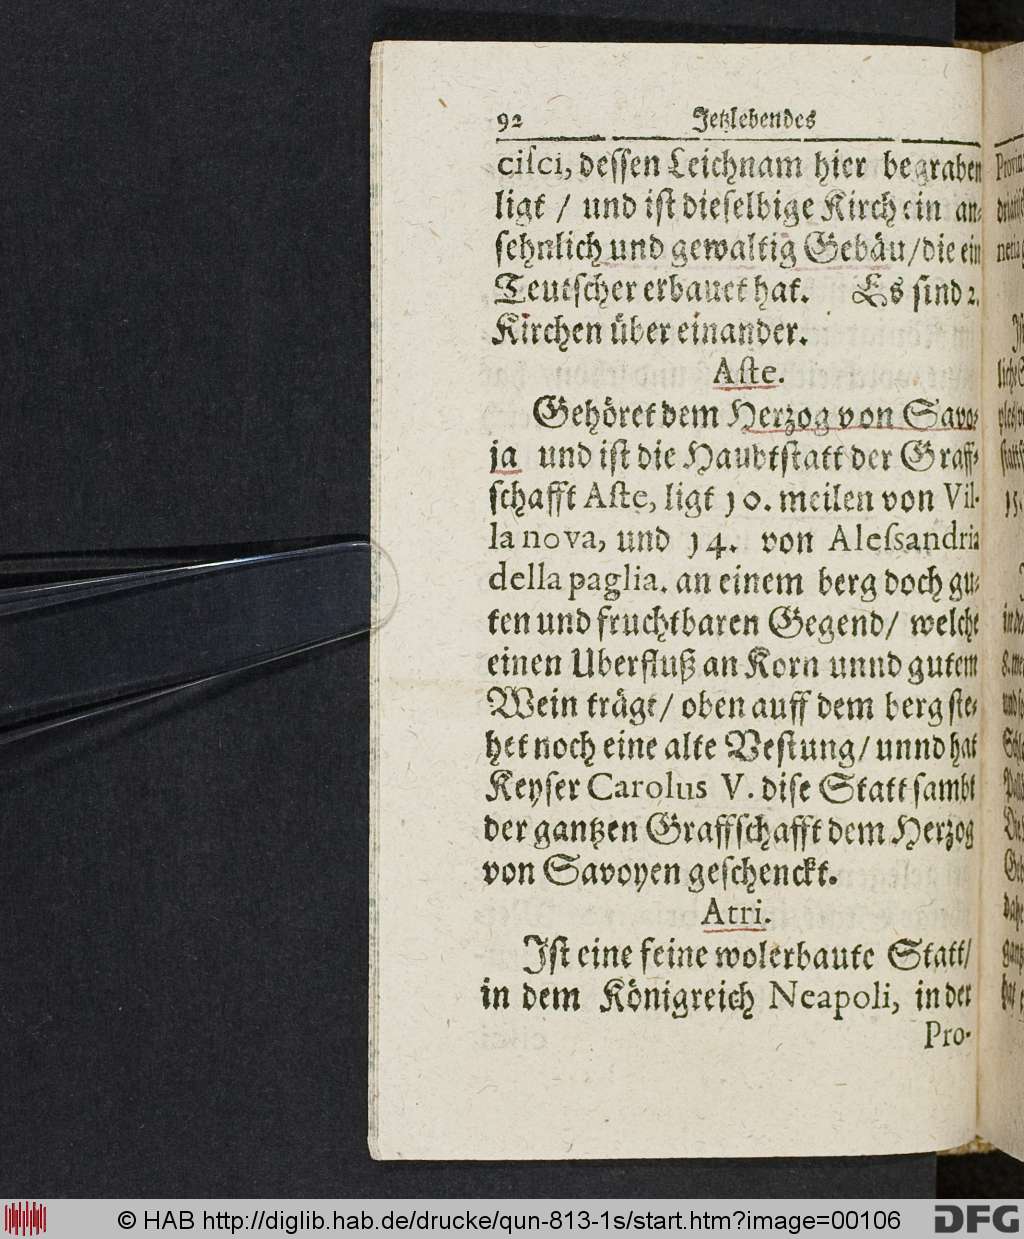 92 Jetzlebendes
ciſci, deſſen Leichnam hier begraben
ligt / und iſt dieſelbige Kirch ein an-
ſehnlich und gewaltig Gebäu/die ein
Teutſcher erbauet hat. Es ſind 2.
Kirchen über einander.
Aſte.
Gehöret dem Herzog von Savo-
ja und iſt die Haubtſtatt der Graff-
ſchafft Aſte, ligt 10. meilen von Vil-
la nova, und 14. von Aleſſandria
della paglia. an einem berg doch gu-
ten und fruchtbaren Gegend/ welche
einen Uberfluß an Korn unnd gutem
Wein trägt/ oben auff dem berg ſte-
het noch eine alte Veſtung/ unnd hat
Keyſer Carolus V. diſe Statt ſambt
der gantzen Graffſchafft dem Herzog
von Savoyen geſchenckt.
Atri.
Iſt eine feine wolerbaute Statt/
in dem Königreich Neapoli, in der
Pro-
© HAB http://diglib.hab.de/drucke/qun-813-1s/start.htm?image=00106 DFG